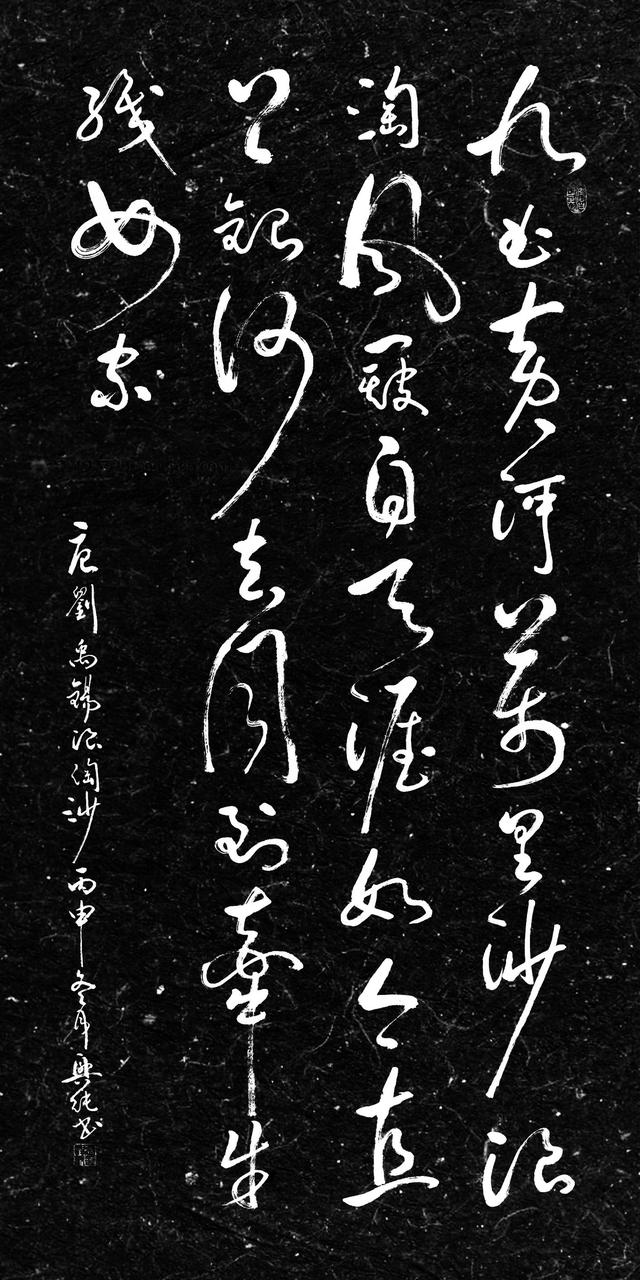 九曲黃河萬里沙浪
淘風簸自天涯如今直
上銀河去同到牽牛
織女家
唐劉禹錫浪淘沙丙申冬月興書